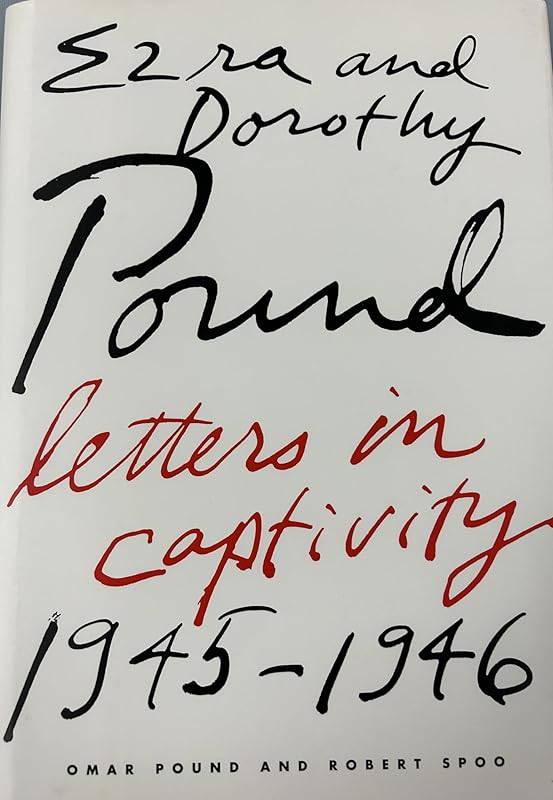 Ezra and
Dorothy
Pound
letters in
captivity
1945-1946
OMAR POUND AND ROBERT SPOO